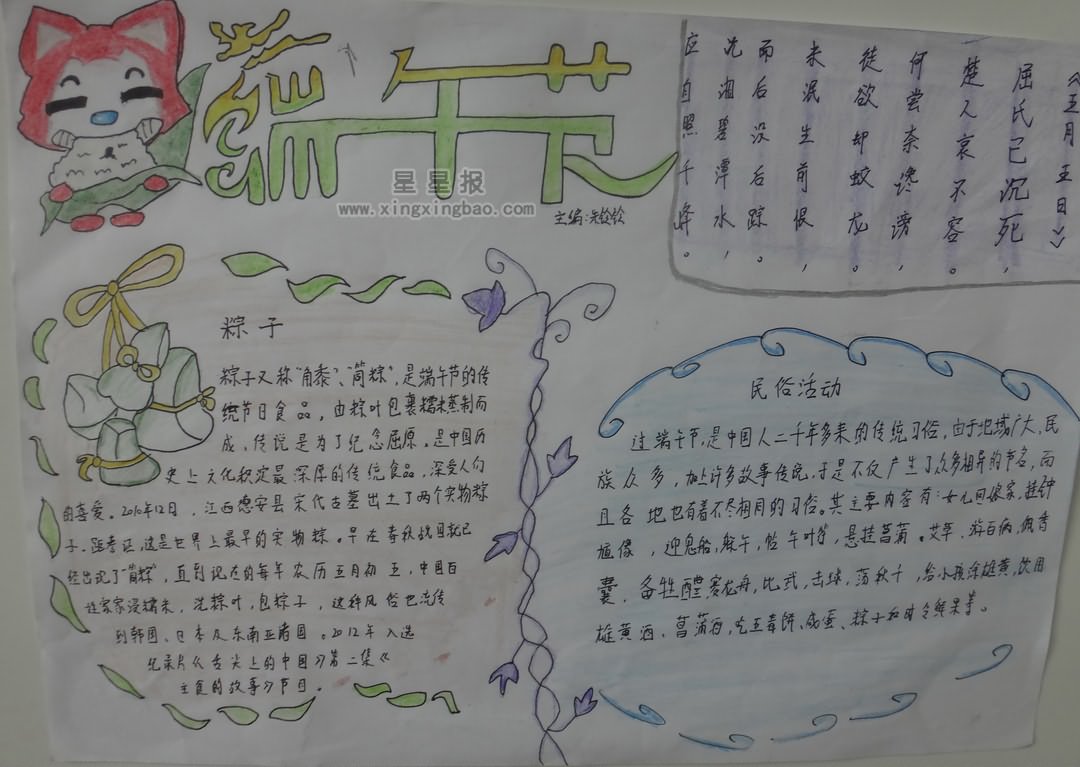 端午节
星星报
www.xingxingbao.com
主编:
《五月五日》
屈氏已沉死，
楚人哀不容。
何尝奈谗谤，
徒欲却蛟龙。
未泯生前恨，
而后没后踪。
沈湘碧潭水，
应自照千峰。
粽子
粽子又称“角黍”、“筒粽”，是端午节的传
统节日食品，由粽叶包裹糯米蒸制而
成，传说是为了纪念屈原。是中国历
史上文化积淀最深厚的传统食品，深受人们
的喜爱。2010年12月，江西德安县宋代古墓出土了两个实物粽
子，据考证，这是世界上最早的实物粽。早在春秋战国就已
经出现了“筒粽”，直到现在的每年农历五月初五，中国百
姓家家浸糯米，洗粽叶，包粽子，这种风俗也流传
到韩国、日本及东南亚诸国。2012年入选
纪录片《舌尖上的中国》第二集《
主食的故事》节目。
民俗活动
过端午节，是中国人二千年多来的传统习俗，由于地域广大，民
族众多，加上许多故事传说，于是不仅产生了众多相异的节名，而
且各地也有着不尽相同的习俗。其主要内容有：女儿回娘家，挂钟
馗像，迎鬼船，躲午，帖午叶符，悬挂菖蒲。艾草，游百病，佩香
囊，备牲醴，赛龙舟，比武，击球，荡秋千，给小孩涂雄黄，饮用
雄黄酒、菖蒲酒，吃五毒饼、咸蛋、粽子和时令鲜果等。